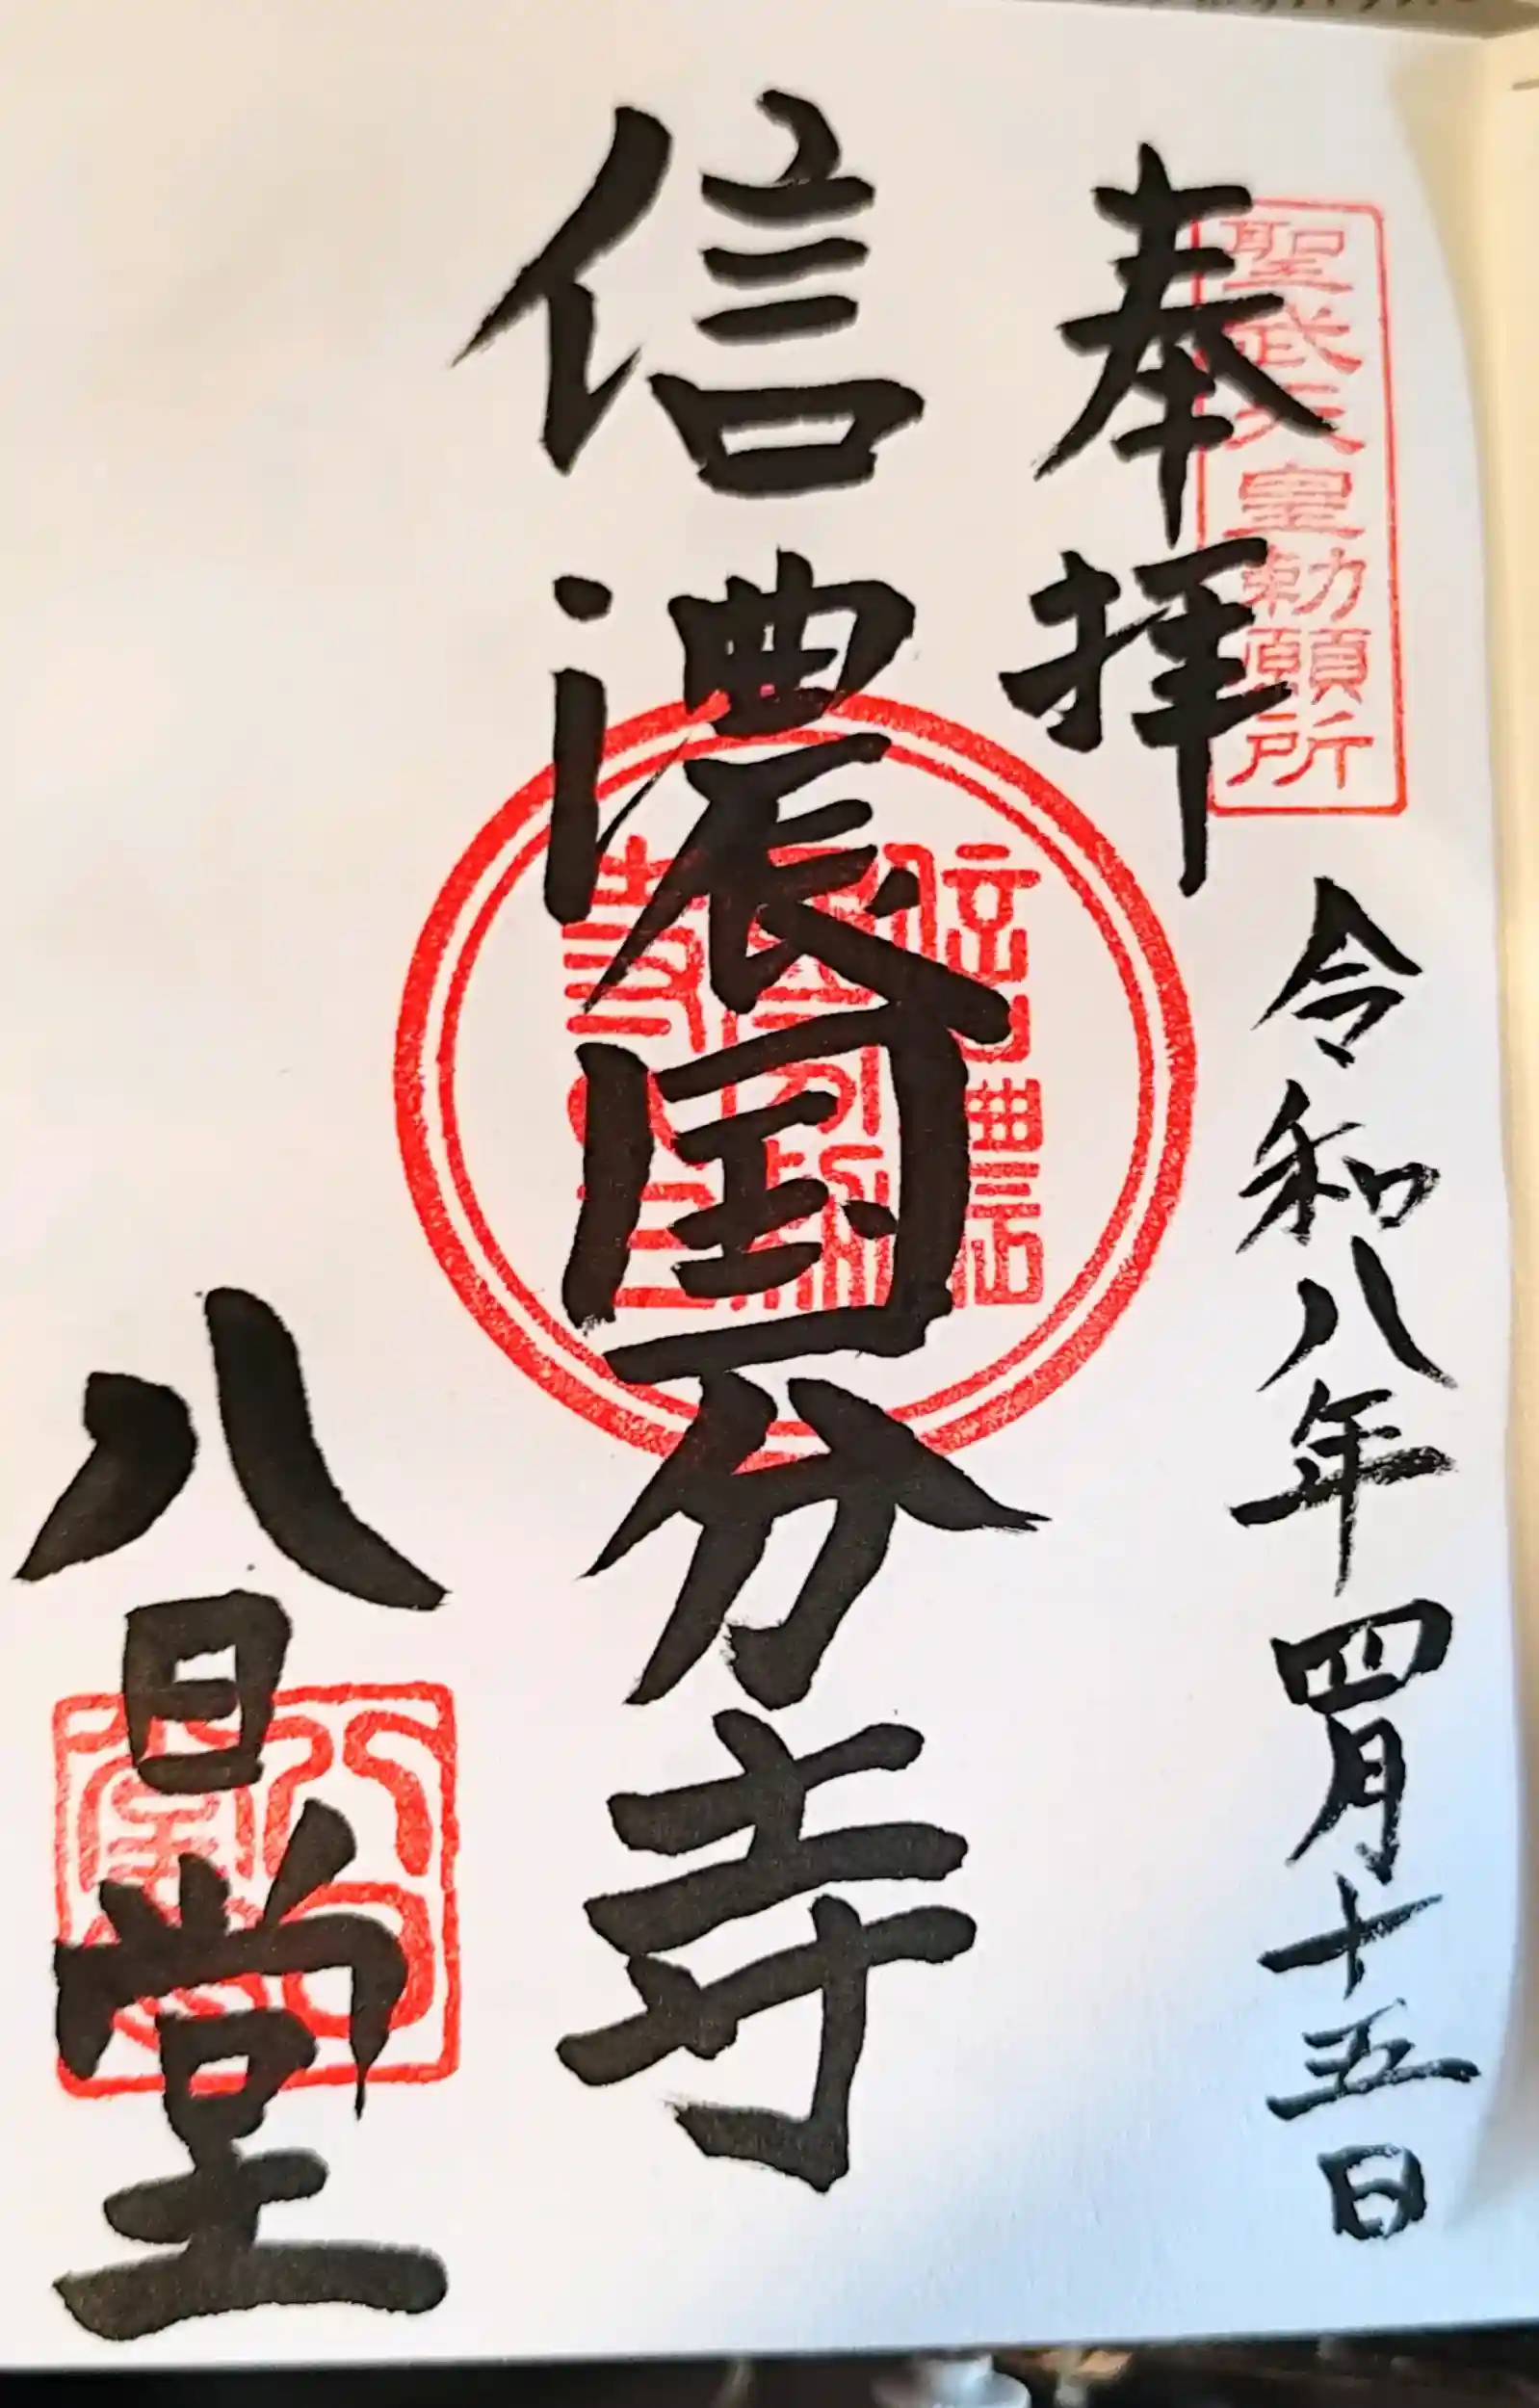 聖武天皇勅願所
奉拝
令和八年四月十五日
信濃国分寺
八日堂